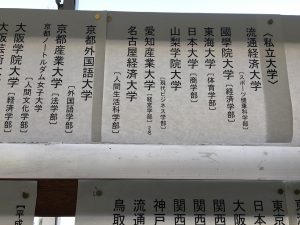 〈私立大学〉
流通経済大学〔スポーツ健康科学部〕
國學院大学〔経済学部〕
東海大学〔体育学部〕
日本大学〔商学部〕
山梨学院大学〔現代ビジネス学部〕
愛知産業大学〔経営学部〕
名古屋経済大学〔人間生活科学部〕
京都外国語大学〔外国語学部〕
京都産業大学〔法学部〕
京都ノートルダム女子大学〔人間文化学部〕
大阪学院大学〔経済学部〕
大阪芸術大
東京
日本
大阪
関西
関西
関西
神戸
流通
鳥取
【平成